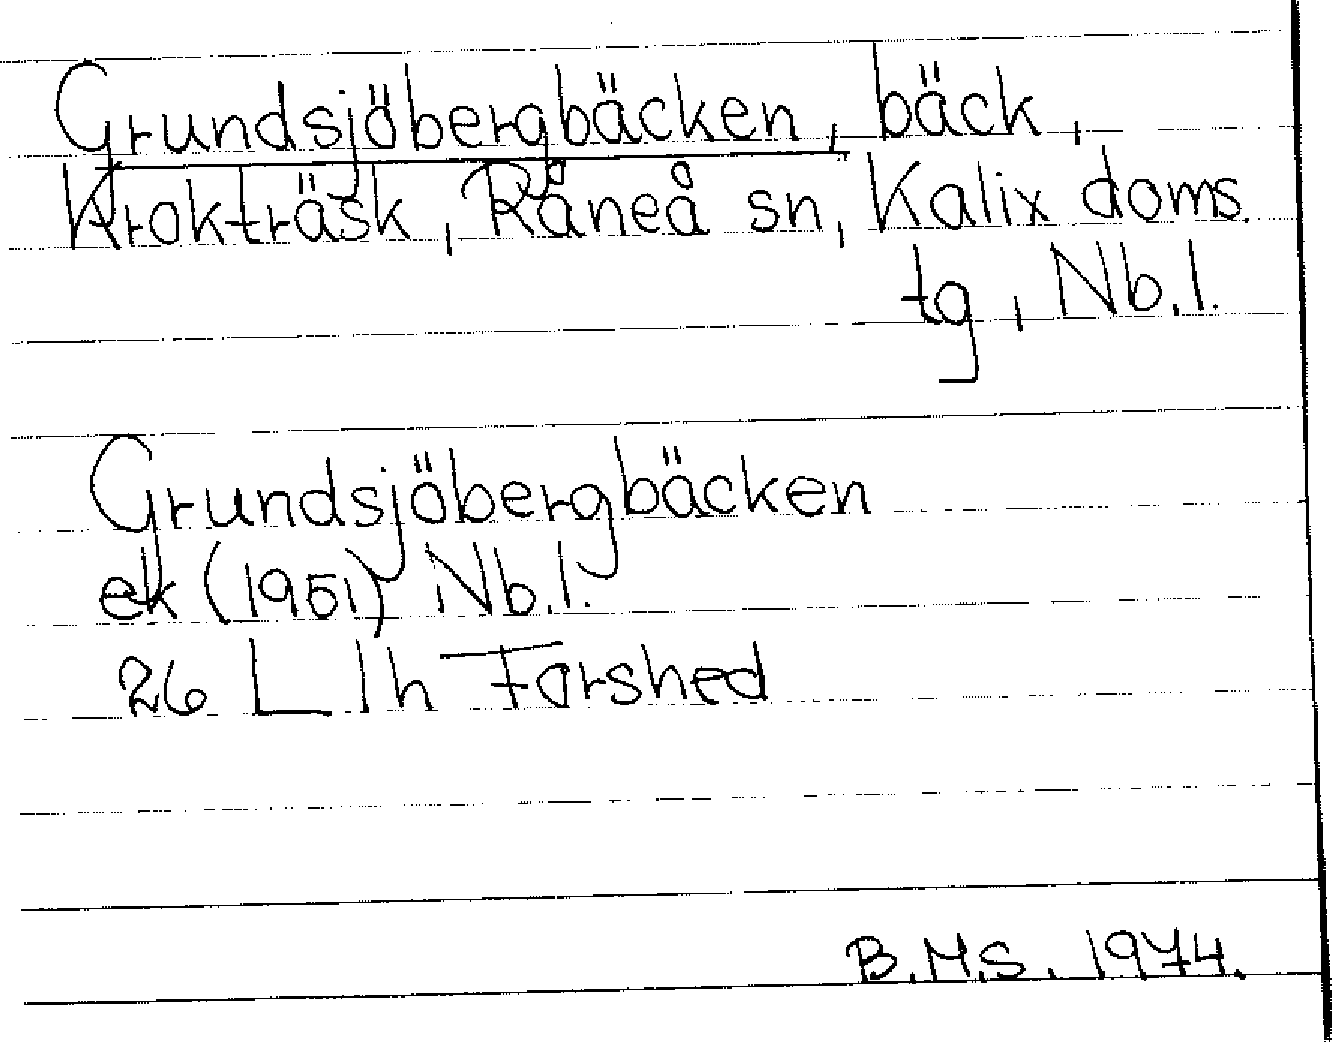 Grundsjöbergbäcken, bäck,
Krokträsk, Råneå sn, Kalix doms.
tg, Nb.l.
Grundsjöbergbäcken
ek (1951) Nb.l.
26 L lh Forshed
B.M.S. 1974.